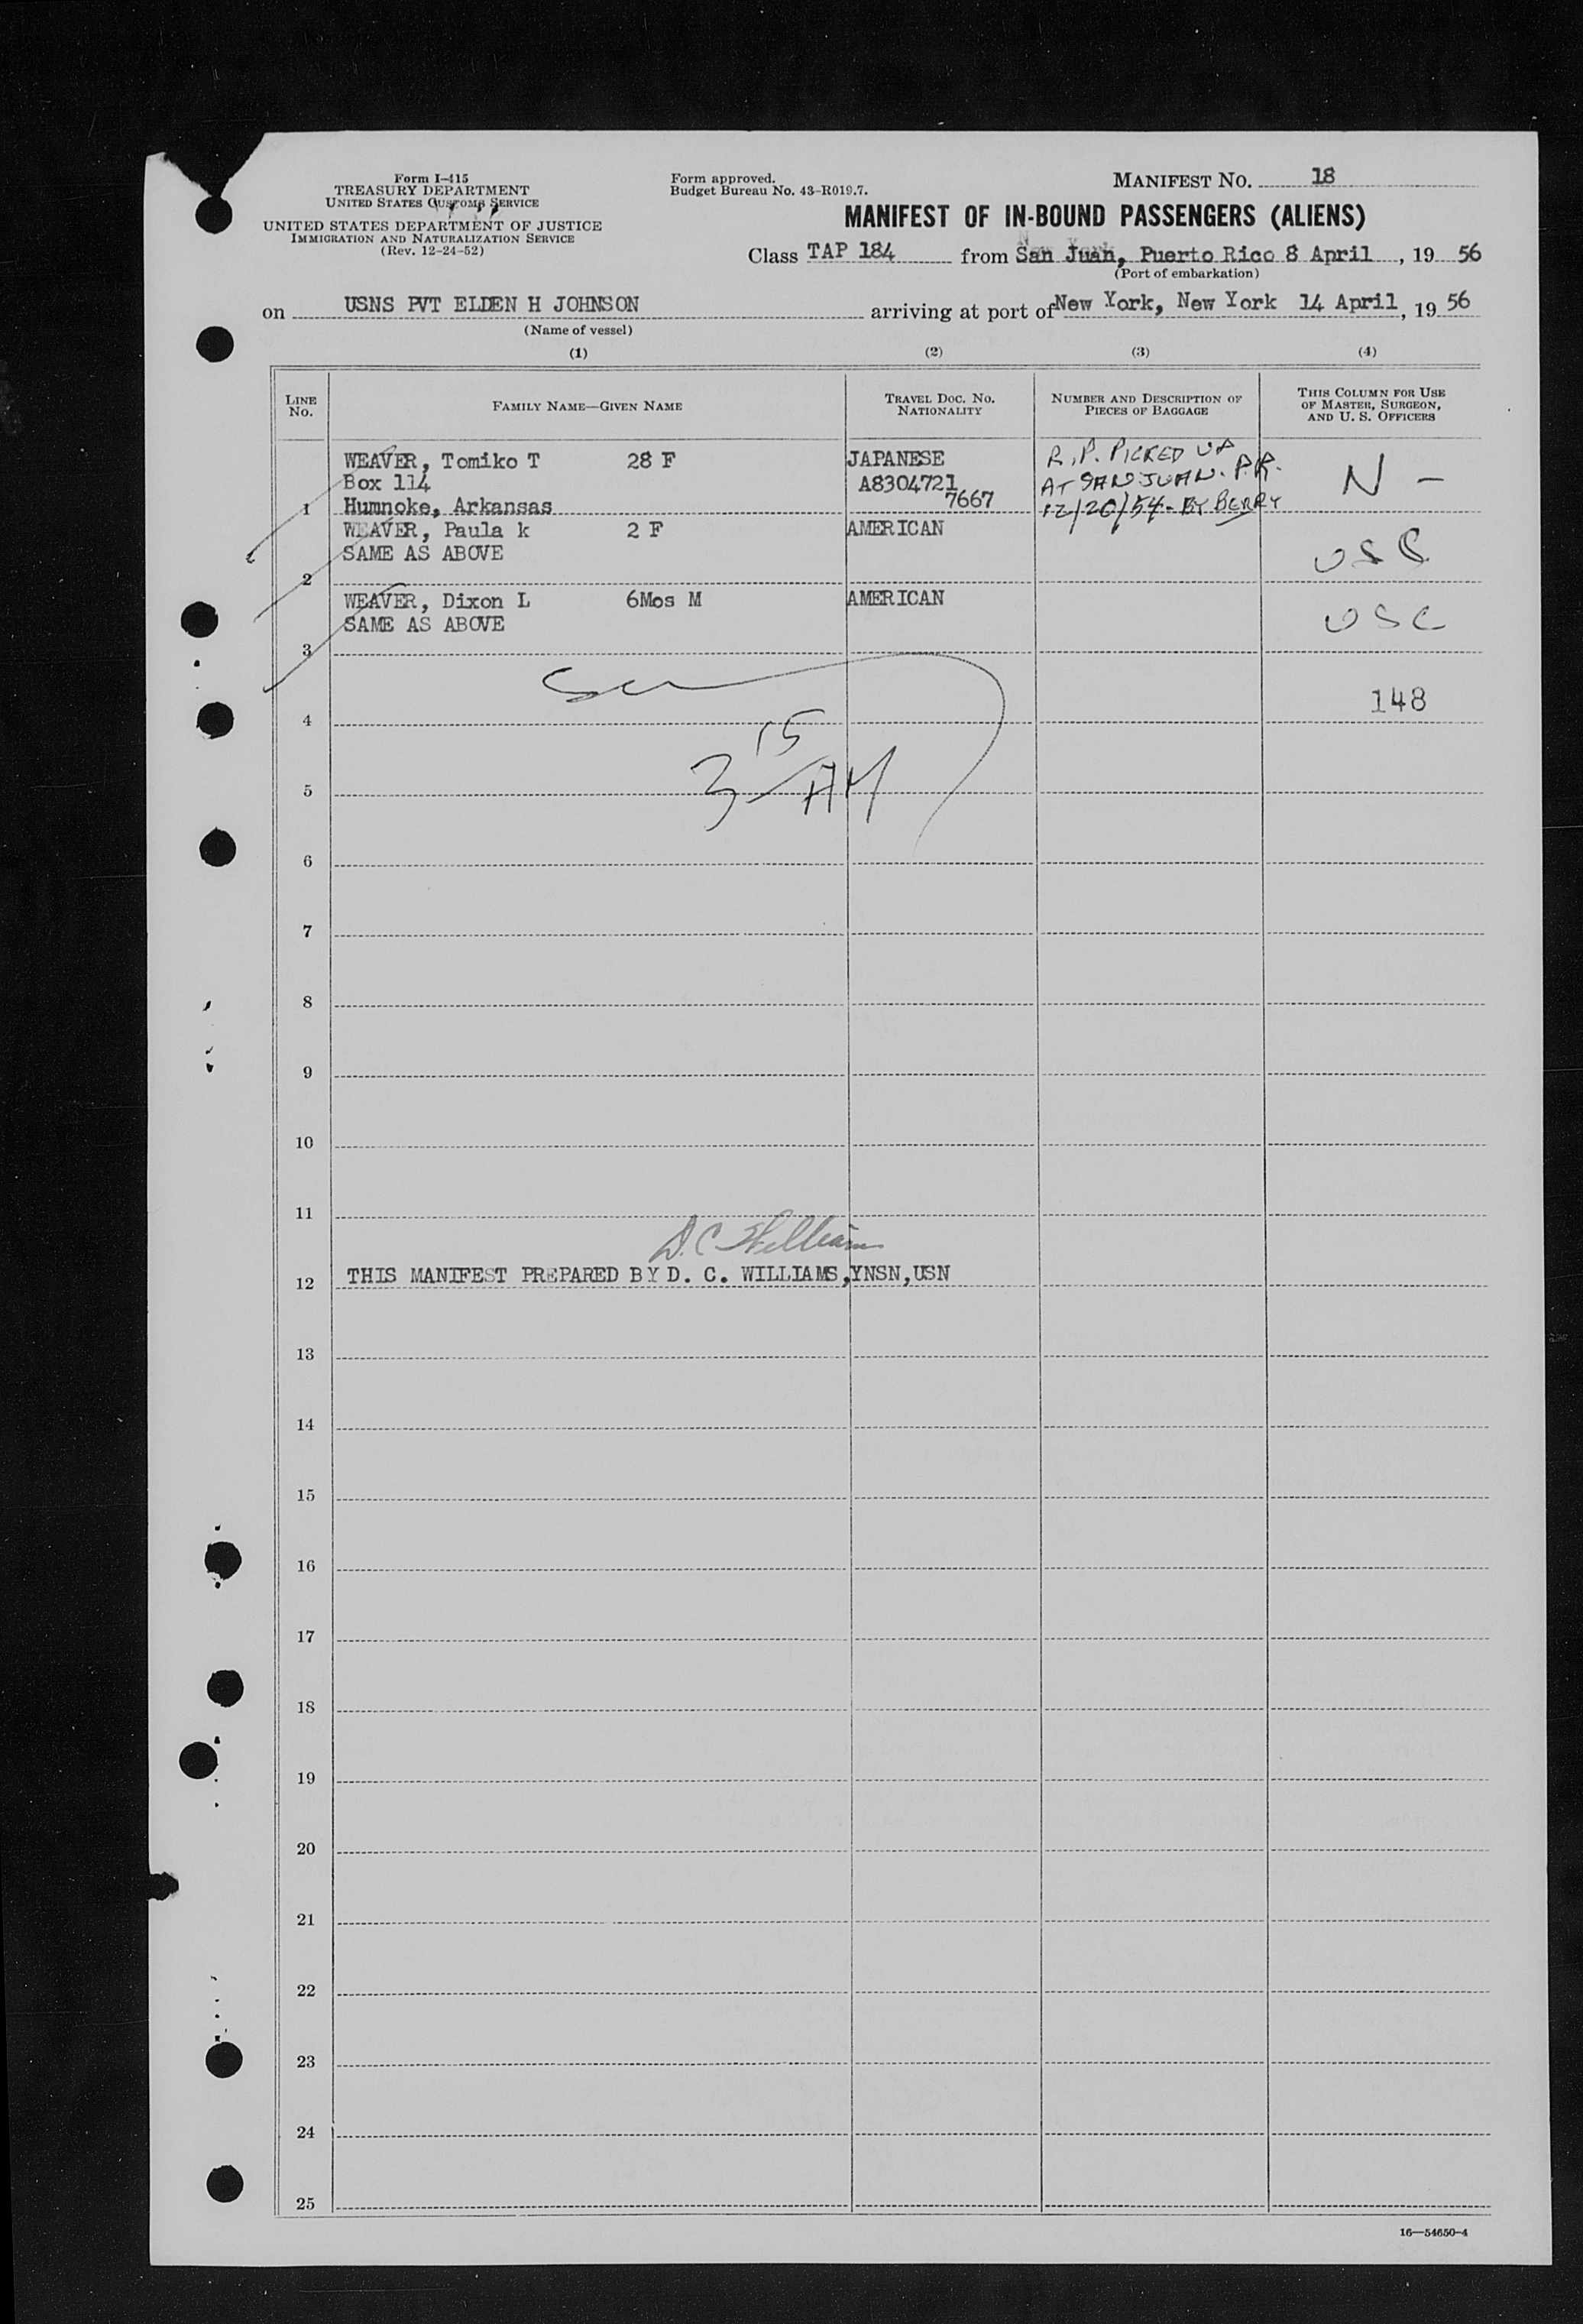 Form I-415
TREASURY DEPARTMENT
UNITED STATES CUSTOMS SERVICE
UNITED STATES DEPARTMENT OF JUSTICE
IMMIGRATION AND NATURALIZATION SERVICE
(Rev. 12-24-52)
Form approved.
Budget Bureau No. 43-R019.7.
MANIFEST NO. 18
MANIFEST OF IN-BOUND PASSENGERS (ALIENS)
Class TAP 184 from San Juan, Puerto Rico 8 April, 19 56
(Port of embarkation)
on USNS PVT ELDEN H JOHNSON arriving at port of New York, New York 14 April, 19 56
(Name of vessel)
(1) (2) (3) (4)
LINE NO. FAMILY NAME—GIVEN NAME TRAVEL DOC. NO. NATIONALITY NUMBER AND DESCRIPTION OF PIECES OF BAGGAGE THIS COLUMN FOR USE OF MASTER, SURGEON, AND U. S. OFFICERS
WEAVER, Tomiko T 28 F JAPANESE R.P. PICKED UP
Box 114 A8304721 AT SAN JUAN. P.R. N -
1 Humnoke, Arkansas 7667 12/20/54 - BY BERRY
WEAVER, Paula k 2 F AMERICAN
SAME AS ABOVE USC
2
WEAVER, Dixon L 6Mos M AMERICAN
SAME AS ABOVE USC
3
4 148
15
5 3 AM
6
7
8
9
10
11
D. C. Williams
12 THIS MANIFEST PREPARED BY D. C. WILLIAMS,YNSN,USN
13
14
15
16
17
18
19
20
21
22
23
24
25
16—54650-4